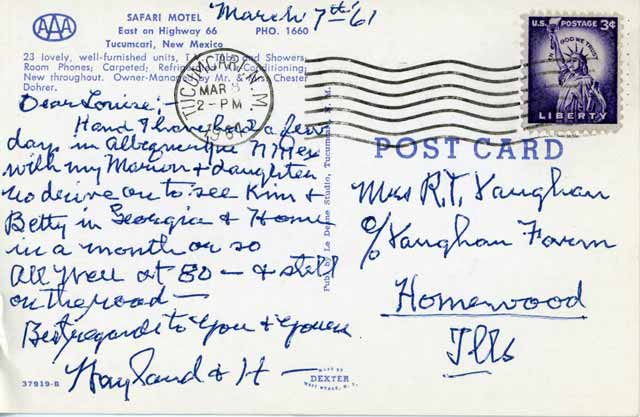 March 7th '61
AAA
SAFARI MOTEL
East on Highway 66 PHO. 1660
Tucumcari, New Mexico
23 lovely, well-furnished units, Tubs and Showers
Room Phones; Carpeted; Conditioning;
New throughout. Owner-Managed by Mr. & Mrs. Chester
Dohrer.
TUCUMCARI, N.M.
MAR 8
2-PM
1961
U.S. POSTAGE 3¢
IN GOD WE TRUST
LIBERTY
POST CARD
Dear Louise:-
H and I have had a few
days in Albuquerque N Mex
with my Marion & daughter
so drive on to see Kim &
Betty in Georgia & Home
in a month or so
All well at 80 - & still
on the road -
Best regards to You & Yours
Hayland & H -
Mrs R.T. Vaughan
c/o Vaughan Farm
Homewood
Ills
Pub. by La Deane Studio, Tucumcari, N. M.
37919-B
MADE BY
DEXTER
WEST NYACK, N.Y.